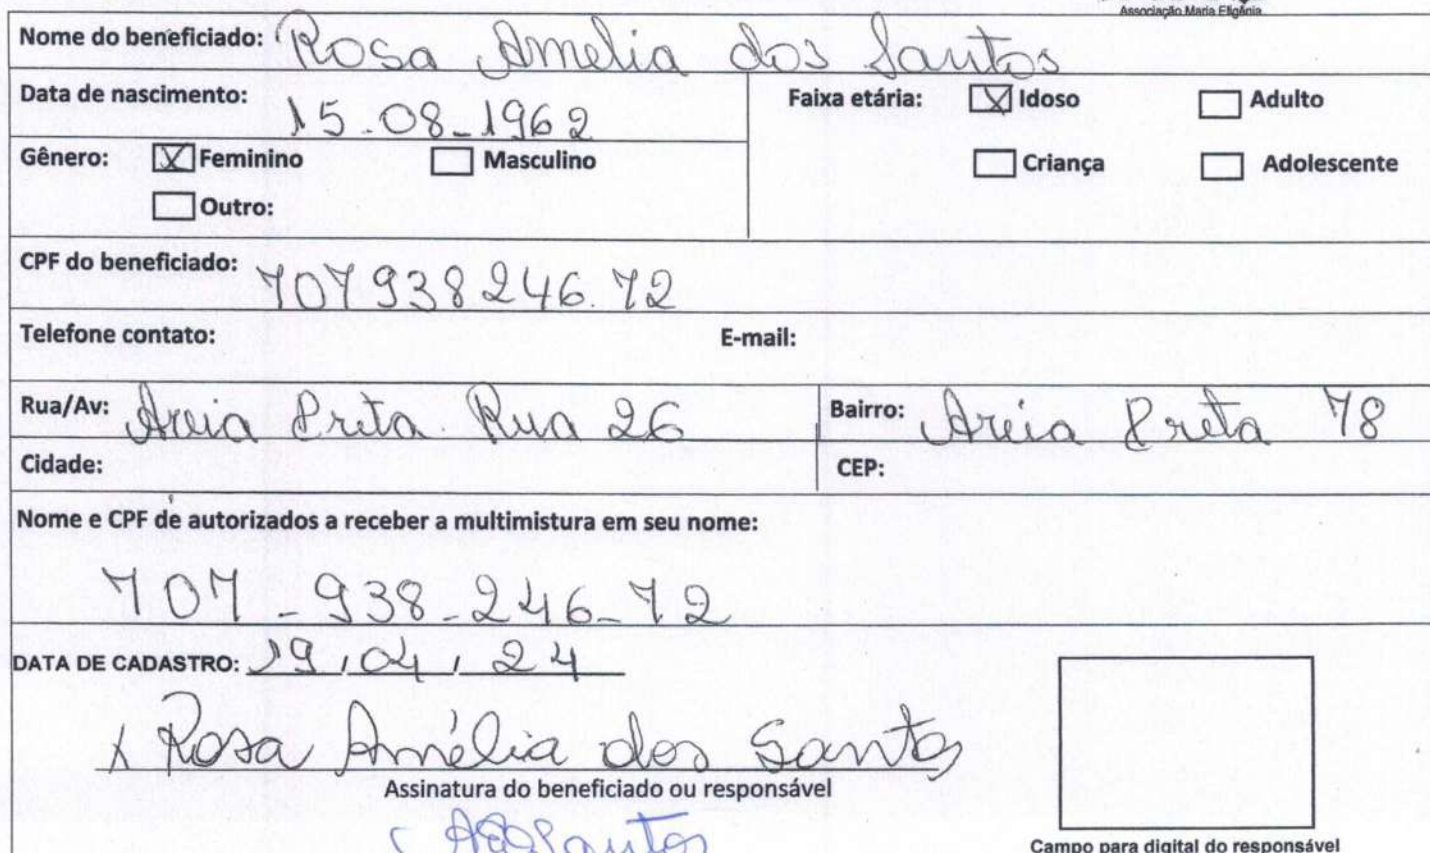 Associação Maria Efigênia
Nome do beneficiado: Rosa Amelia dos Santos
Data de nascimento: 15-08-1962
Faixa etária: [X] Idoso [ ] Adulto
Gênero: [X] Feminino [ ] Masculino
[ ] Criança [ ] Adolescente
[ ] Outro:
CPF do beneficiado: 707938246.72
Telefone contato: E-mail:
Rua/Av: Areia Preta Rua 26 Bairro: Areia Preta 78
Cidade: CEP:
Nome e CPF de autorizados a receber a multimistura em seu nome:
707-938-246-72
DATA DE CADASTRO: 19/04/24
X Rosa Amélia dos Santos
Assinatura do beneficiado ou responsável
Campo para digital do responsável